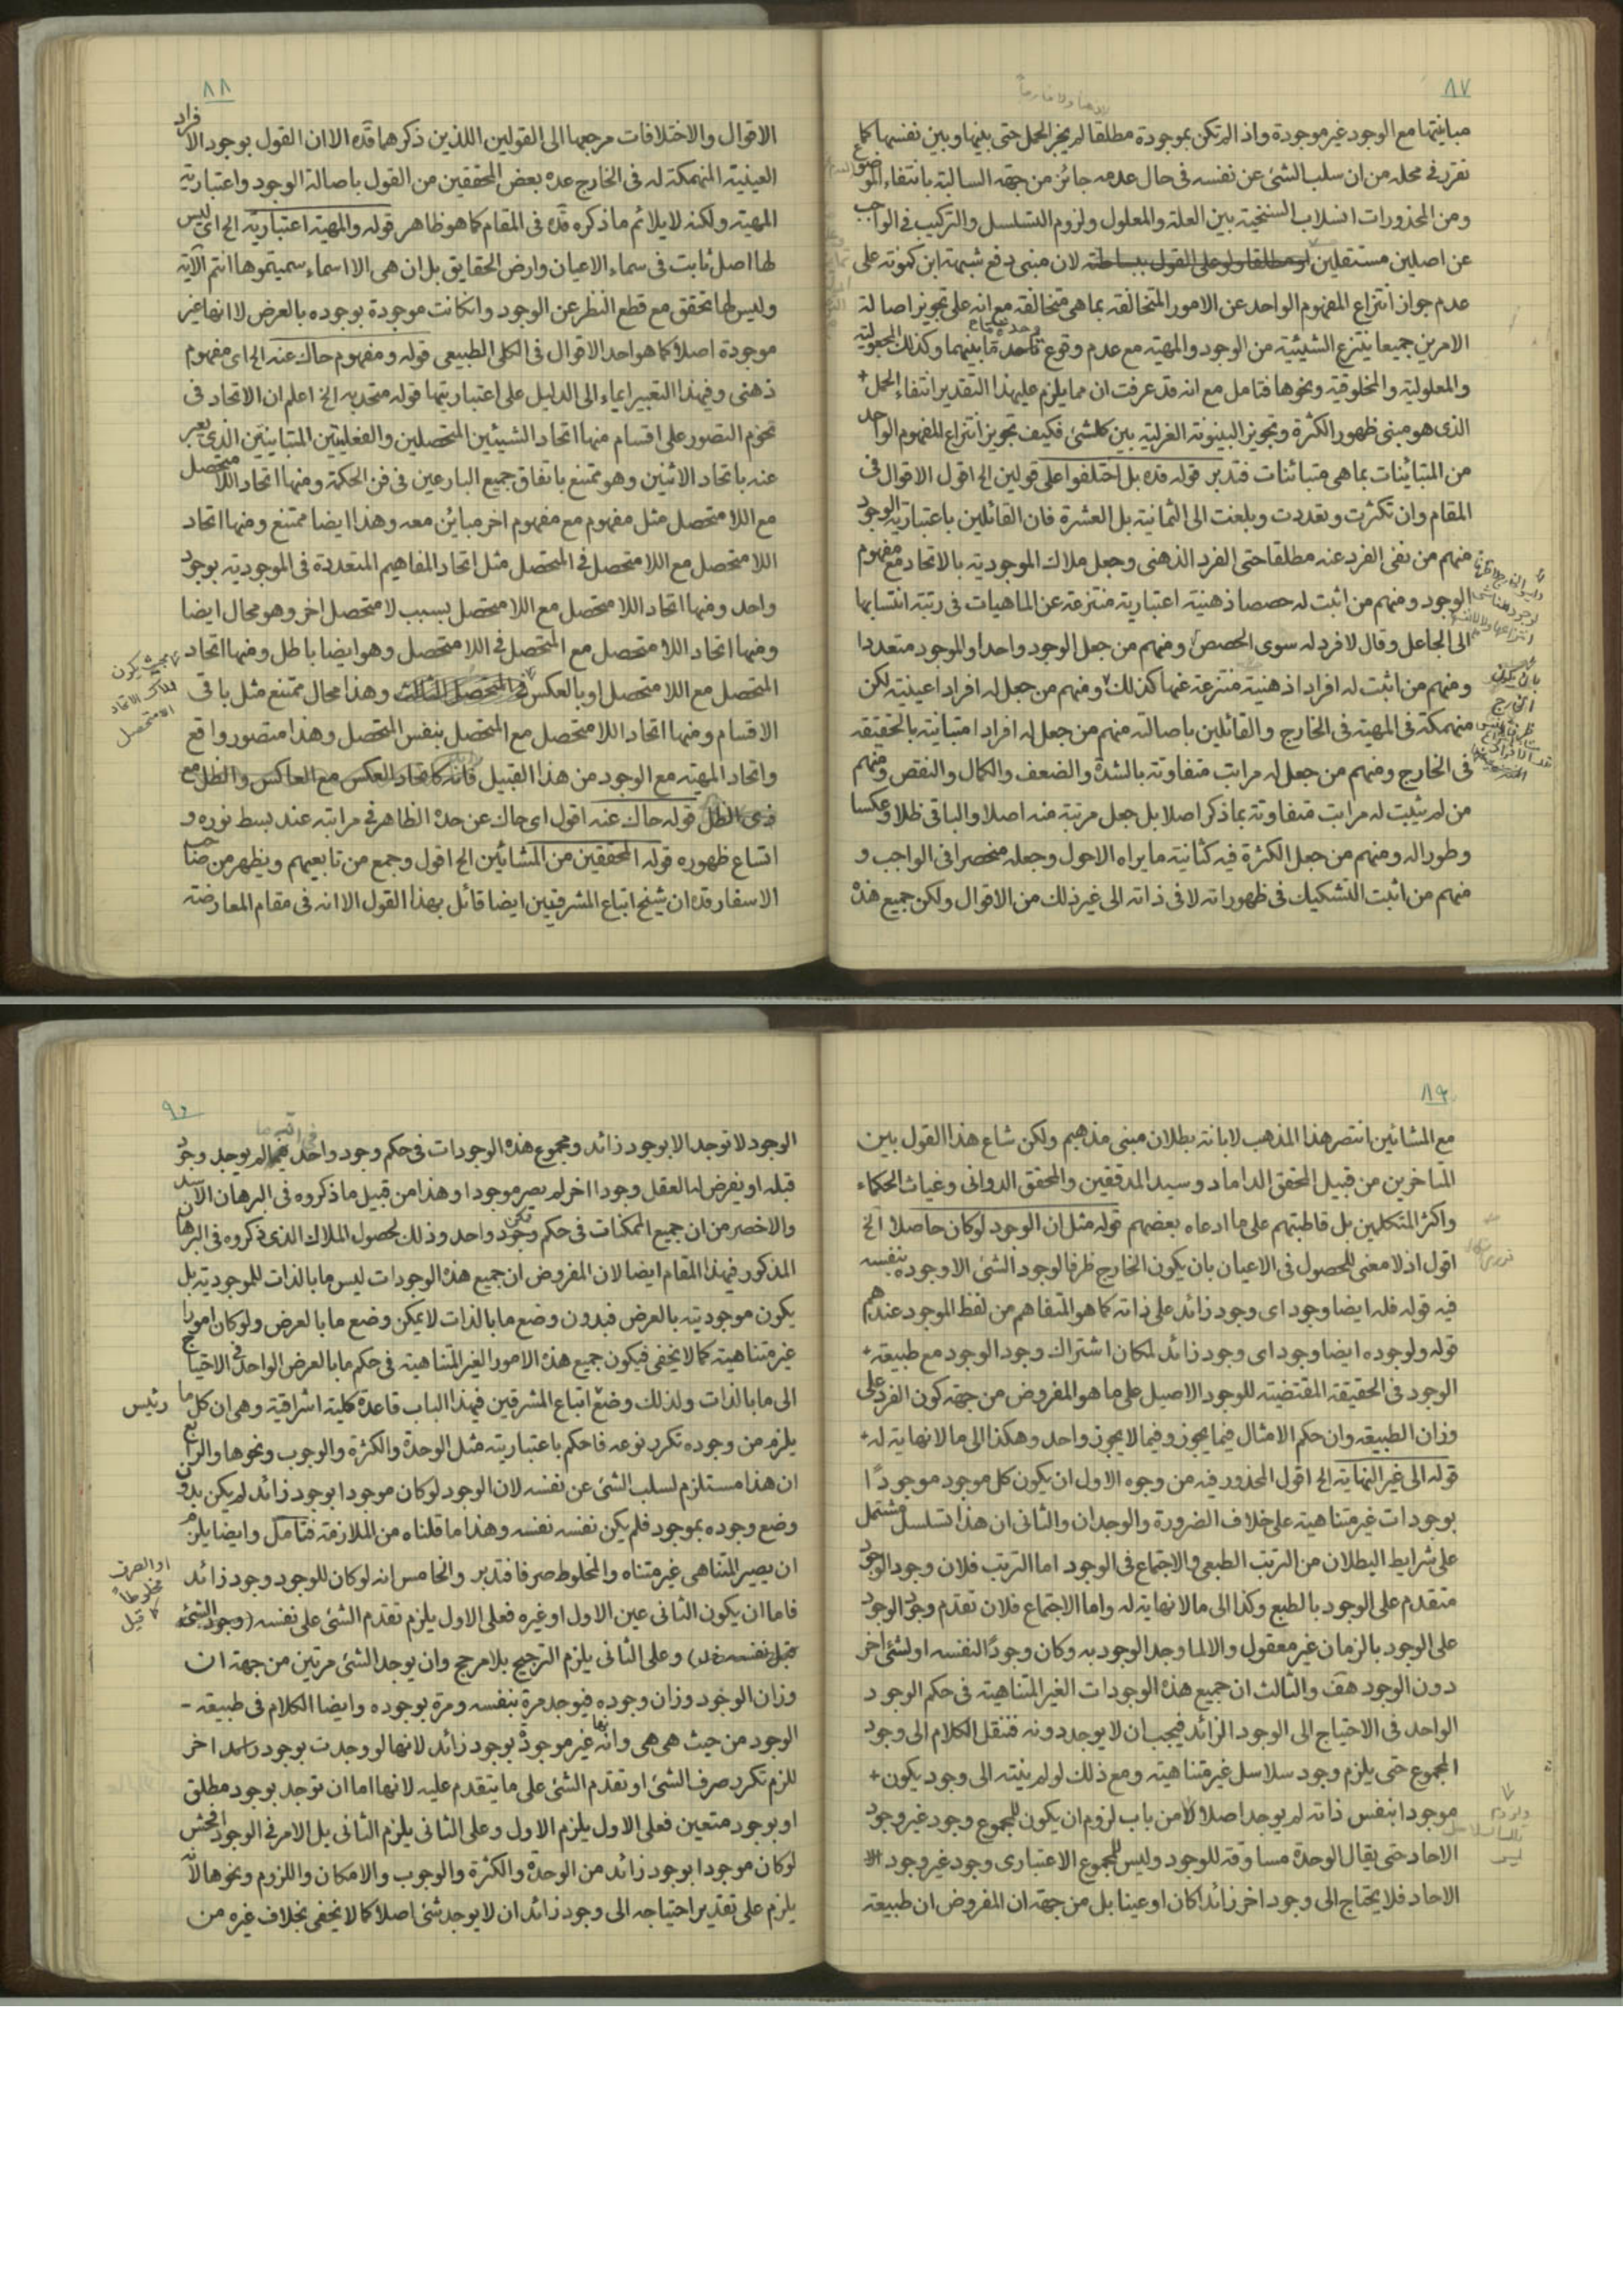 ٨٧
مباينتها مع الوجود غير موجودة واذا لم تكن بموجودة مطلقا لم يجز الحمل حتى بينها وبين نفسها كما
تقرر في محله من ان سلب الشئ عن نفسه في حال عدمه جائز من جهة السالبة بانتفاء الموضوع
ومن المحذورات انسلاب السنخية بين العلة والمعلول ولزوم التسلسل والتركيب في الواجب
عن اصلين مستقلين او مطلقا ولو على القول ببساطته لان مبنى دفع شبهة ابن كمونة على
عدم جواز انتزاع المفهوم الواحد عن الامور المتخالفة بما هي متخالفة مع انه على تجويز اصالة
الامرين جميعا ينتزع الشيئية من الوجود والمهية مع عدم وقوع وحدة ما بينهما وكذلك المجعولية
والمعلولية والمخلوقية ونحوها فتامل مع انه قد عرفت ان مما يلزم عليهذا التقدير انتفاء الحمل
الذى هو مبنى ظهور الكثرة وتجويز البينونة العزلية بين كل شئ فكيف تجويز انتزاع المفهوم الواحد
من المتباينات بما هي متبائنات فتدبر قوله قده بل اختلفوا على قولين الخ اقول الاقوال في
المقام وان تكثرت وتعددت وبلغت الى الثمانية بل العشرة فان القائلين باعتبارية الوجود
منهم من نفى الفرد عنه مطلقا حتى الفرد الذهنى وجعل ملاك الموجودية بالاتحاد مع مفهوم
الوجود ومنهم من اثبت له حصصا ذهنية اعتبارية منتزعة عن الماهيات في رتبة انتسابها
الى الجاعل وقال لا فرد له سوى الحصص ومنهم من جعل الوجود واحدا والموجود متعددا
ومنهم من اثبت له افرادا ذهنية منتزعة عنها كذلك ومنهم من جعل له افرادا عينية لكن
منهمكة في المهية في الخارج والقائلين باصالته منهم من جعل له افرادا متبانية بالحقيقة
في الخارج ومنهم من جعل له مراتب متفاوتة بالشدة والضعف والكمال والنقص ومنهم
من لم يثبت له مراتب متفاوتة بما ذكر اصلا بل جعل مرتبة منه اصلا والباقى ظلا وعكسا
وطورا له ومنهم من جعل الكثرة فيه كثانية ما يراه الاحول وجعله منحصرا فى الواجب و
منهم من اثبت التشكيك فى ظهوراته لا فى ذاته الى غير ذلك من الاقوال ولكن جميع هذه
بان يكون
الخارج
٨٨
الاقوال والاختلافات مرجعها الى القولين اللذين ذكرهما قده الا ان القول بوجود الافراد
العينية المنهمكة له فى الخارج عده بعض المحققين من القول باصالة الوجود واعتبارية
المهية ولكنه لا يلائم ما ذكره قده فى المقام كما هو ظاهر قوله والمهية اعتبارية الخ اى ليس
لها اصل ثابت فى سماء الاعيان وارض الحقايق بل ان هى الا اسماء سميتموها انتم الآية
وليس لها تحقق مع قطع النظر عن الوجود وانكانت موجودة بوجوده بالعرض لا انها غير
موجودة اصلا كما هو احد الاقوال فى الكلى الطبيعى قوله ومفهوم حاك عنه الخ اى مفهوم
ذهنى وفيهذا التعبير ايماء الى الدليل على اعتباريتها قوله متحد به الخ اعلم ان الاتحاد فى
تخوم التصور على اقسام منها اتحاد الشيئين المتحصلين والفعليتين المتباينتين الذى يعبر
عنه باتحاد الاثنين وهو ممتنع باتفاق جميع البارعين فى فن الحكمة ومنها اتحاد اللا متحصل
مع اللا متحصل مثل مفهوم مع مفهوم اخر مبائن معه وهذا ايضا ممتنع ومنها اتحاد
اللا متحصل مع اللا متحصل فى المتحصل مثل اتحاد المفاهيم المتعددة فى الموجودية بوجود
واحد ومنها اتحاد اللا متحصل مع اللا متحصل بسبب لا متحصل اخر وهو محال ايضا
ومنها اتحاد اللا متحصل مع المتحصل فى اللا متحصل وهو ايضا باطل ومنها اتحاد
المتحصل مع اللا متحصل او بالعكس فى المتحصل الثالث وهذا محال ممتنع مثل باقى
الاقسام ومنها اتحاد اللا متحصل مع المتحصل بنفس المتحصل وهذا متصور واقع
واتحاد المهية مع الوجود من هذا القبيل فانه كاتحاد العكس مع العاكس والظل مع
ذى الظل قوله حاك عنه اقول اى حاك عن حده الظاهر فى مراتبه عند بسط نوره و
اتساع ظهوره قوله المحققين من المشائين الخ اقول وجمع من تابعيهم ويظهر من صاحب
الاسفار قده ان شيخ اتباع المشرقيين ايضا قائل بهذا القول الا انه فى مقام المعارضة
بحيث يكون
ملاك الاتحاد
اللامتحصل
٨٩
مع المشائين انتصر هذا المذهب لابانة بطلان مبنى مذهبهم ولكن شاع هذا القول بين
المتاخرين من قبيل المحقق الداماد وسيد المدققين والمحقق الدوانى وغياث الحكماء
واكثر المتكلمين بل قاطبتهم على ما ادعاه بعضهم قوله مثل ان الوجود لو كان حاصلا الخ
اقول اذ لا معنى للحصول فى الاعيان بان يكون الخارج ظرفا لوجود الشئ الا وجوده بنفسه
فيه قوله فله ايضا وجود اى وجود زائد على ذاته كما هو المتفاهم من لفظ الموجود عندهم
قوله ولوجوده ايضا وجود اى وجود زائد لمكان اشتراك وجود الوجود مع طبيعة
الوجود فى الحقيقة المقتضية للوجود الاصيل على ما هو المفروض من جهة كون الفرد على
وزان الطبيعة وان حكم الامثال فيما يجوز وفيما لا يجوز واحد وهكذا الى ما لا نهاية له
قوله الى غير النهاية الخ اقول المحذور فيه من وجوه الاول ان يكون كل موجود موجودًا
بوجودات غير متناهية على خلاف الضرورة والوجدان والثانى ان هذا تسلسل مشتمل
على شرايط البطلان من الترتب الطبعى والاجتماع فى الوجود اما الترتب فلان وجود الوجود
متقدم على الوجود بالطبع وكذا الى ما لا نهاية له واما الاجتماع فلان تقدم وجود الوجود
على الوجود بالزمان غير معقول والا لما وجد الوجود به وكان وجودًا لنفسه او لشئ اخر
دون الوجود هف والثالث ان جميع هذه الوجودات الغير المتناهية فى حكم الوجود
الواحد فى الاحتياج الى الوجود الزائد فيجب ان لا يوجد دونه فننقل الكلام الى وجود
المجموع حتى يلزم وجود سلاسل غير متناهية ومع ذلك لو لم ينته الى وجود يكون
موجودا بنفس ذاته لم يوجد اصلا لا من باب لزوم ان يكون للمجموع وجود غير وجود
الاحاد حتى يقال الوحدة مساوقة للوجود وليس للمجموع الاعتبارى وجود غير وجود
الاحاد فلا يحتاج الى وجود اخر زائدا كان او عينا بل من جهة ان المفروض ان طبيعة
٩٠
الوجود لا توجد الا بوجود زائد ومجموع هذه الوجودات فى حكم وجود واحد فما لم يوجد وجود
قبله او يفرض له العقل وجودا اخر لم يصر موجودا وهذا من قبيل ما ذكروه فى البرهان الاسد
والاخصر من ان جميع الممكنات فى حكم ممكن واحد وذلك لحصول الملاك الذى ذكروه فى البرهان
المذكور فيهذا المقام ايضا لان المفروض ان جميع هذه الوجودات ليس ما بالذات للموجودية بل
يكون موجوديته بالعرض فبدون وضع ما بالذات لا يمكن وضع ما بالعرض ولو كان امورا
غير متناهية كما لا يخفى فيكون جميع هذه الامور الغير المتناهية فى حكم ما بالعرض الواحد فى الاحتياج
الى ما بالذات ولذلك وضع اتباع المشرقين فيهذا الباب قاعدة كلية اشراقية وهى ان كل ما
يلزم من وجوده تكرر نوعه فاحكم باعتباريته مثل الوحدة والكثرة والوجوب ونحوها والرابع
ان هذا مستلزم لسلب الشئ عن نفسه لان الوجود لو كان موجودا بوجود زائد لم يكن بدون
وضع وجوده بموجود فلم يكن نفسه نفسه وهذا ما قلناه من الملازمة فتامل وايضا يلزم
ان يصير المتناهى غير متناه والمخلوط صرفا فتدبر والخامس انه لو كان للوجود وجود زائد
فاما ان يكون الثانى عين الاول او غيره فعلى الاول يلزم تقدم الشئ على نفسه (وجود الشئ
قبل نفسه خل) وعلى الثانى يلزم الترجيح بلا مرجح وان يوجد الشئ مرتين من جهة ان
وزان الوجود وزان وجوده فيوجد مرة بنفسه ومرة بوجوده وايضا الكلام فى طبيعة
الوجود من حيث هى هى وانها غير موجودة بوجود زائد لانها لو وجدت بوجود زائد اخر
للزم تكرر صرف الشئ او تقدم الشئ على ما يتقدم عليه لانها اما ان توجد بوجود مطلق
او بوجود متعين فعلى الاول يلزم الاول وعلى الثانى يلزم الثانى بل الامر فى الوجود افحش
لو كان موجودا بوجود زائد من الوحدة والكثرة والوجوب والامكان واللزوم ونحوها لانه
يلزم على تقدير احتياجه الى وجود زائد ان لا يوجد شئ اصلا كما لا يخفى بخلاف غيره من
رئيس
او الصرف
مخلوطاً